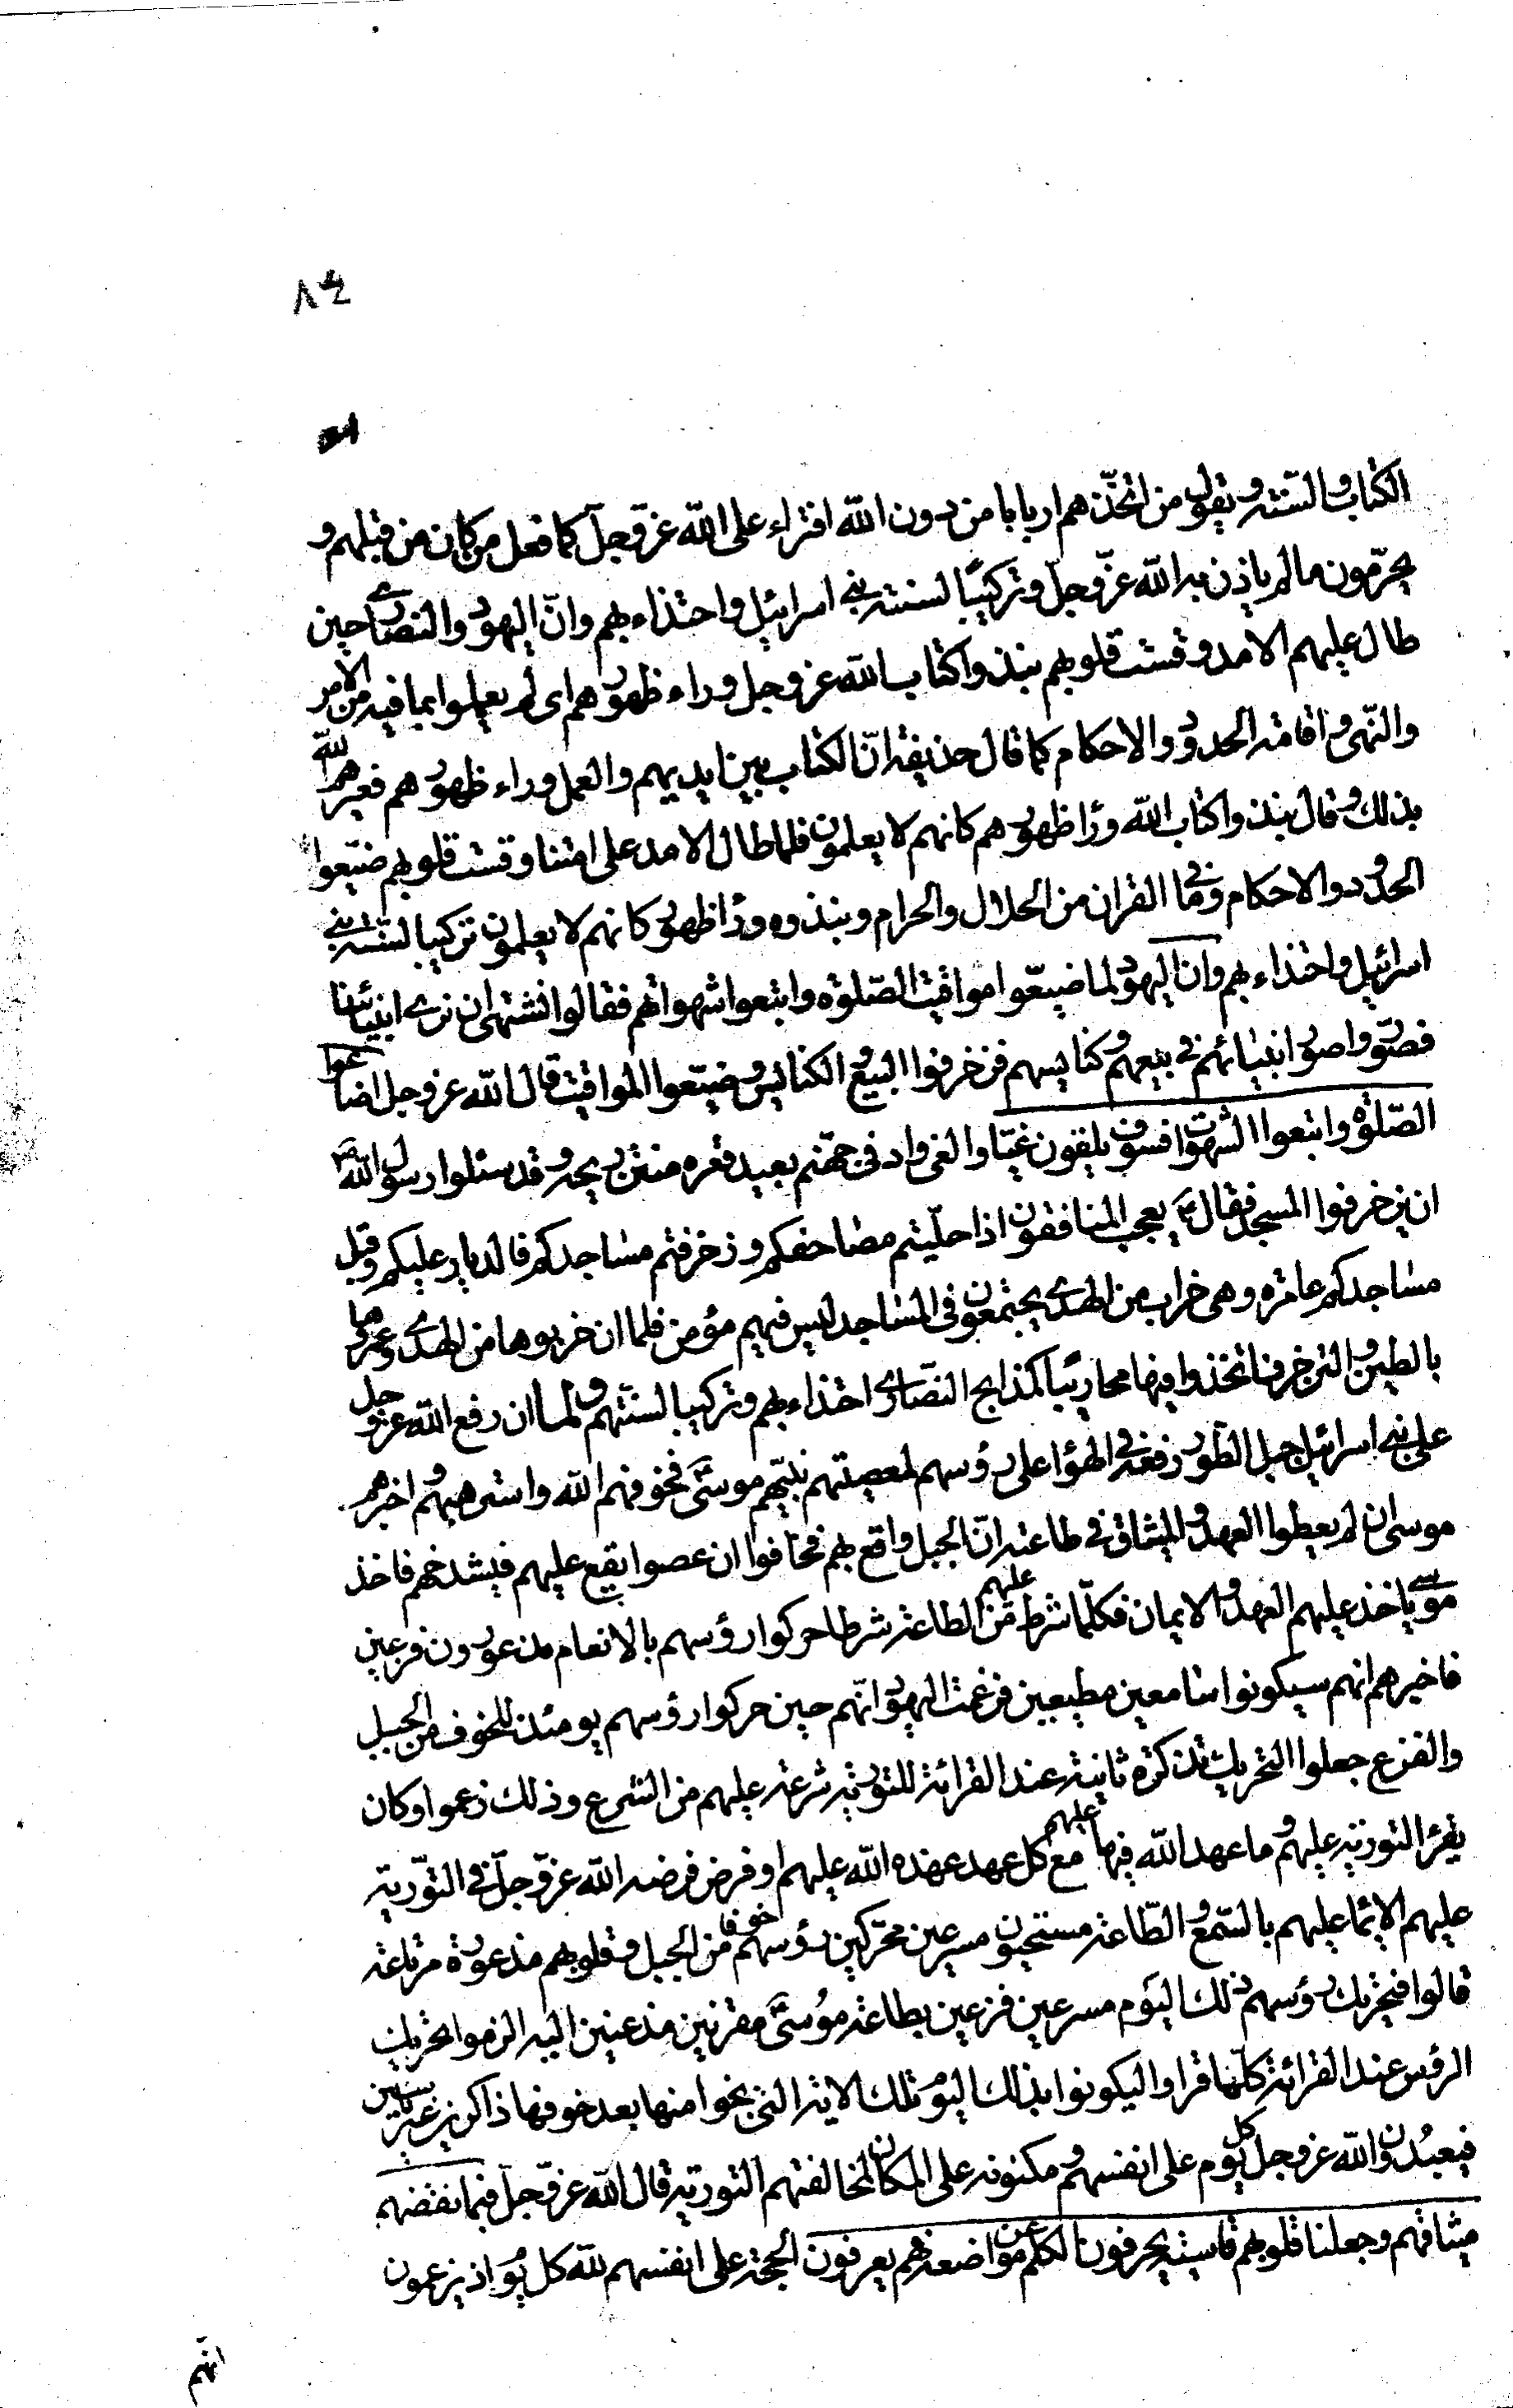 ٨٤
الكتاب والسنة ويقول من اتخذهم اربابا من دون الله افتراء على الله عزّوجلّ كما فعل من كان من قبلهم و
يحرّمون ما لم ياذن به الله عزّوجلّ وتركيبًا لسنة بنى اسرائيل واحتذاء بهم وانّ اليهود والنصارى حين
طال عليهم الامد وقست قلوبهم نبذوا كتاب الله عزوجل وراء ظهورهم اى لم يعملوا بما فيه من الامر
والنّهى واقامة الحدود والاحكام كما قال حذيفة انّ الكتاب بين ايديهم والعمل وراء ظهورهم فعيرهم الله
بذلك وقال نبذوا كتاب الله وراء ظهورهم كانهم لا يعلمون فلما طال الامد على امتنا وقست قلوبهم ضيّعوا
الحدود والاحكام وما فى القران من الحلال والحرام ونبذوه وراء ظهورهم كانهم لا يعلمون تركيبا لسنة بنى
اسرائيل واحتذاء بهم وان اليهود لما ضيعّوا مواقيت الصّلوة واتبعوا شهواتهم فقالوا نشتهى ان نرى انبيائنا
فصوّروا صور انبيائهم فى بيعهم وكنايسهم فزخرفوا البيع والكنايس وضيّعوا المواقيت قال الله عزوجل اضاعوا
الصّلوة واتبعوا الشهوات فسوف يلقون غيّا والغى واد فى جهّنم بعيد قعره منتن ريحه وقد سئلوا رسول الله ص
ان يزخرفوا المسجد فقال ص يعجب المنافقون اذا حلّيتم مصاحفكم وزخرفتم مساجدكم فالدبار عليكم وقيل
مساجدكم عامرة وهى خراب من الهدى يجتمعون فى المساجد ليس فيهم مؤمن فلما ان خربوها من الهدى وعمروها
بالطين والزخرف اتخذوا فيها محاريبًا كمذابح النصارى احتذاء بهم وتركيبا لسنّتهم ولما ان رفع الله عزوجل
على بنى اسرائيل جبل الطور رفعه فى الهواء على رؤسهم لمعصيتهم نبيّهم موسىٰ فخوفهم الله واسترهبهم واخبرهم
موسى ان لم يعطوا العهد والميثاق فى طاعته انّ الجبل واقع بهم فخافوا ان عصوا يقع عليهم فيشدخهم فاخذ
موسى ياخذ عليهم العهد والايمان فكلّما شرط عليهم من الطاعة شرطا حركوا رؤسهم بالانعام مذعورون فزعين
فاخبرهم انهم سيكونوا سامعين مطيعين فزعمت اليهود انّهم حين حركوا رؤسهم يومئذ للخوف من الجبل
والفزع جعلوا التحريك تذكرة ثانية عند القرائة للتورية شرعة عليهم من الشرع وذلك زعموا وكان
يقرء التورية عليهم وما عهد الله فيها عليهم مع كل عهد عهده الله عليهم او فرض فرضه الله عزّوجلّ فى التّورية
عليهم بالسّمع والطّاعة مستحيون مسرعين محرّكين رؤسهم خوفا من الجبل وقلوبهم مذعورة مرتاعة
قالوا فتحريك رؤسهم ذلك اليوم مسرعين فزعين بطاعة موُسىٰ مقرنين مذعنين اليه الزموا تحريك
الرؤس عند القرائة كلّها قراوا ليكونوا بذلك اليوم تلك الاية التى نجوا منها بعد خوفها ذاكرين غير ناسين
فيعبُدون الله عزوجل كل يوم على انفسهم ومكنونه على المكان لمخالفتهم التورية قال الله عزّوجلّ فبما نقضهم
ميثاقهم وجعلنا قلوبهم قاسية يحرفون الكلم عن مواضعه فهم يعرفون الحجة على انفسهم لله كل يوم اذ يزعمون
انّهم